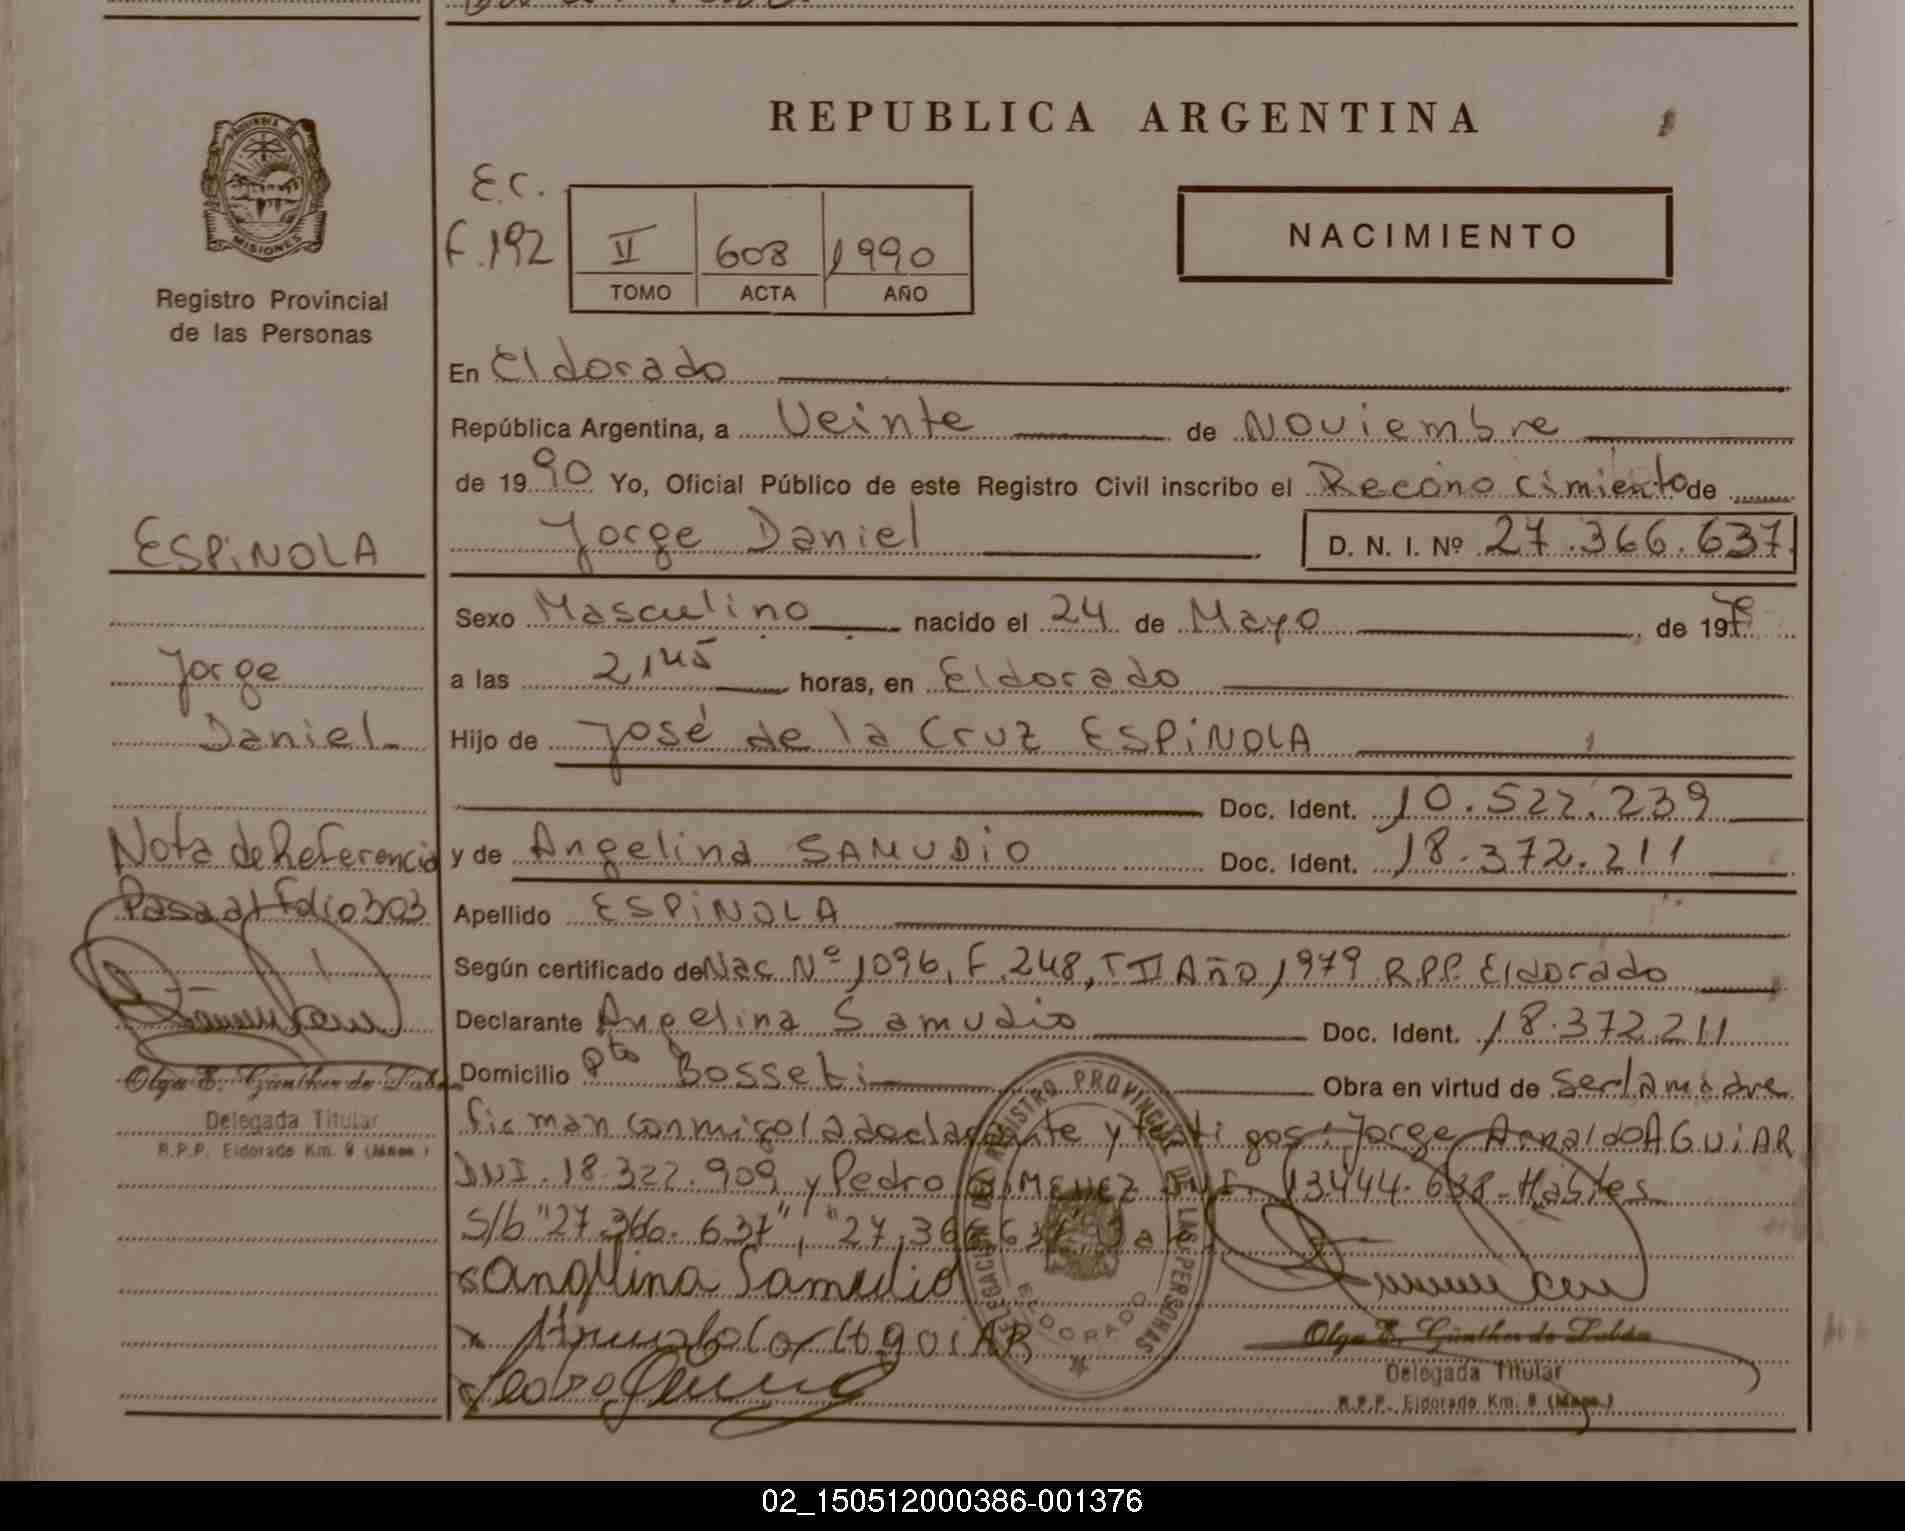 REPUBLICA ARGENTINA
PROVINCIA DE
MISIONES
Registro Provincial
de las Personas
E.C.
F.192
II 608 1990
TOMO ACTA AÑO
NACIMIENTO
En Eldorado
República Argentina, a Veinte de Noviembre
de 1990 Yo, Oficial Público de este Registro Civil inscribo el Reconocimiento de
Jorge Daniel D. N. I. Nº 27.366.637.
ESPINOLA
Jorge
Daniel
Sexo Masculino nacido el 24 de Mayo de 19
a las 21 45 horas, en Eldorado
Hijo de José de la Cruz ESPINOLA
Doc. Ident. 10.522.239
y de Angelina SAMUDIO Doc. Ident. 18.372.211
Apellido ESPINOLA
Según certificado de Nac. Nº 1096, F. 248, T II Año 1979 R.P.P. Eldorado
Declarante Angelina Samudio Doc. Ident. 18.372.211
Domicilio Pto Bosseti Obra en virtud de Ser la madre
firman conmigo la declarante y testigos: Jorge Arnaldo AGUIAR
DNI. 18.322.909 y Pedro GIMENEZ DNI. 13444.638 - Hábiles
S/b "27.366.637", "27.366.637" Vale
Angelina Samudio
AgUiAR
Pedro
Nota de Referencia
Pasa al folio 303
Olga E. Günther de
Delegada Titular
R.P.P. Eldorado Km. 9 (Mnes.)
DELEGACION DEL REGISTRO PROVINCIAL DE LAS PERSONAS
ELDORADO
Olga E. Günther de
Delegada Titular
R.P.P. Eldorado Km. 9 (Mnes.)
02_150512000386-001376